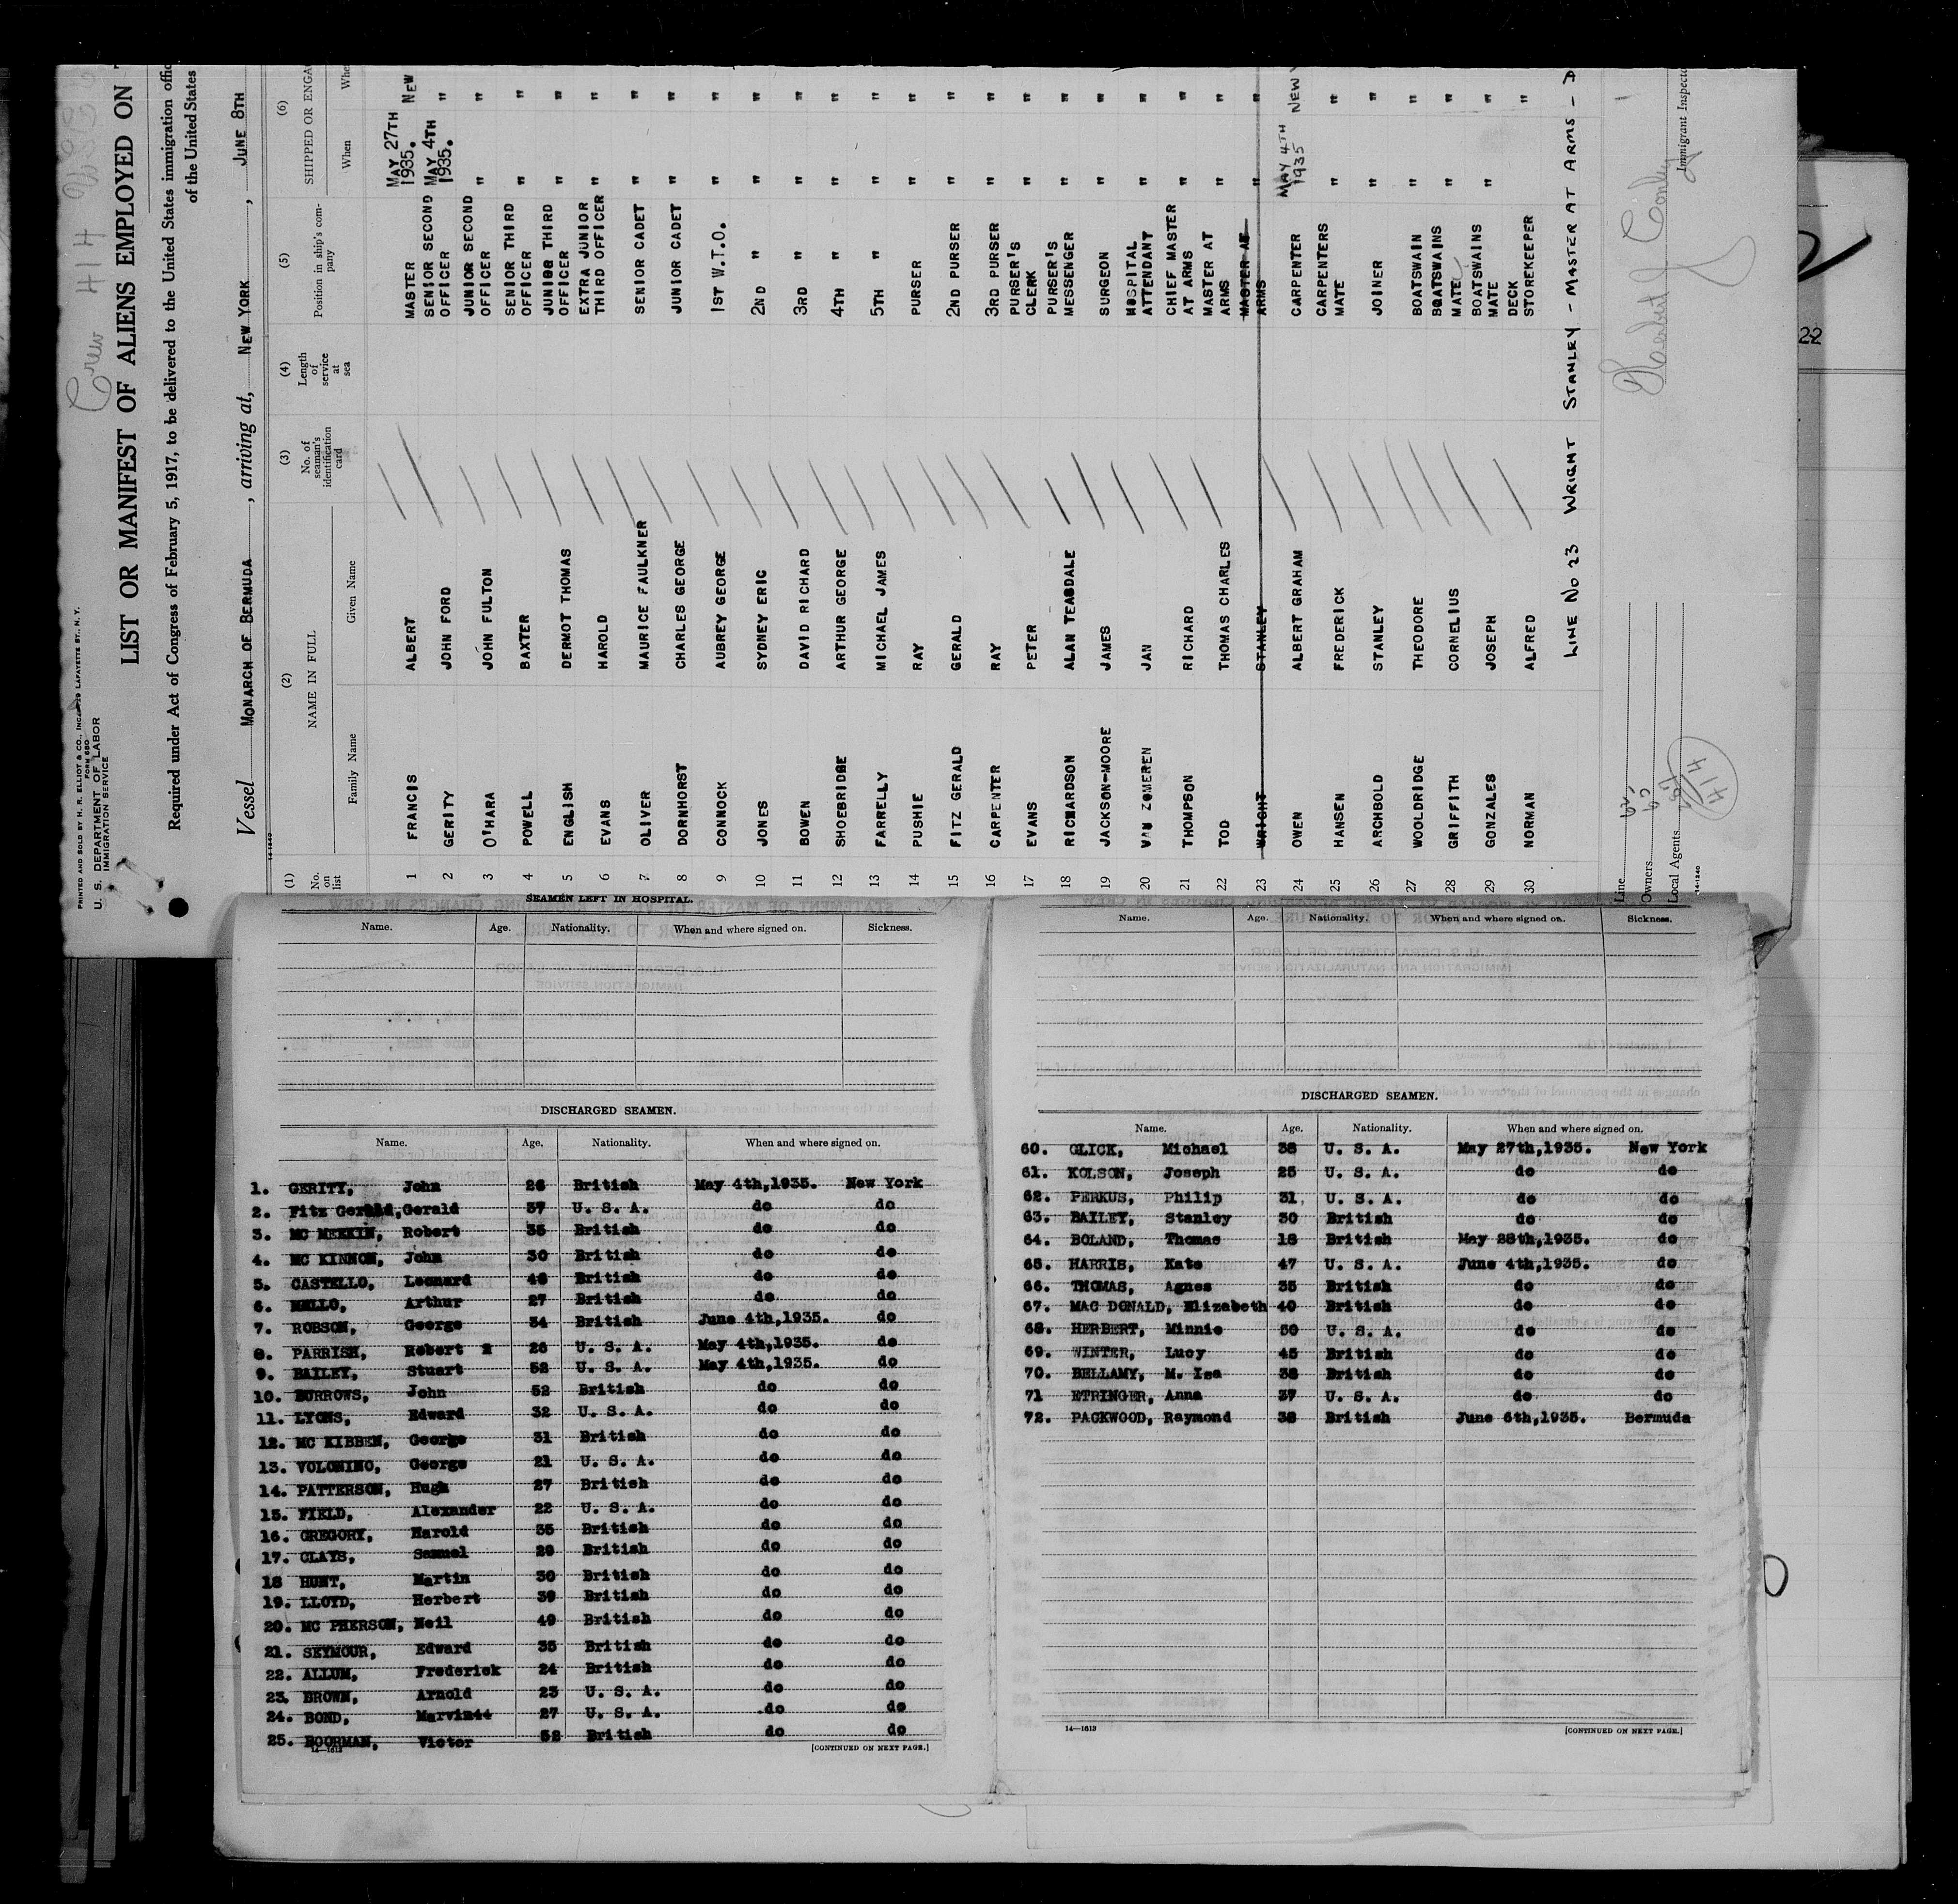 Crew 414
PRINTED AND SOLD BY H. R. ELLIOT & CO., INC. 219 LAFAYETTE ST., N. Y.
FORM 680
U. S. DEPARTMENT OF LABOR
IMMIGRATION SERVICE
LIST OR MANIFEST OF ALIENS EMPLOYED ON
Required under Act of Congress of February 5, 1917, to be delivered to the United States immigration offic
of the United States
Vessel MONARCH OF BERMUDA, arriving at, NEW YORK, JUNE 8TH
14-1240
(1) (2) (3) (4) (5) (6)
No. on list NAME IN FULL No. of seaman's identification card Length of service at sea Position in ship's company SHIPPED OR ENGA
Family Name Given Name When Whe
1 FRANCIS ALBERT MASTER MAY 27TH 1935. NEW
2 GERITY JOHN FORD SENIOR SECOND OFFICER MAY 4TH 1935. "
3 O'HARA JOHN FULTON JUNIOR SECOND OFFICER " "
4 POWELL BAXTER SENIOR THIRD OFFICER " "
5 ENGLISH DERMOT THOMAS JUNIOR THIRD OFFICER " "
6 EVANS HAROLD EXTRA JUNIOR THIRD OFFICER " "
7 OLIVER MAURICE FAULKNER SENIOR CADET " "
8 DORNHORST CHARLES GEORGE JUNIOR CADET " "
9 CONNOCK AUBREY GEORGE 1ST W.T.O. " "
10 JONES SYDNEY ERIC 2ND " " "
11 BOWEN DAVID RICHARD 3RD " " "
12 SHOEBRIDGE ARTHUR GEORGE 4TH " " "
13 FARRELLY MICHAEL JAMES 5TH " " "
14 PUSHIE RAY PURSER " "
15 FITZ GERALD GERALD 2ND PURSER " "
16 CARPENTER RAY 3RD PURSER " "
17 EVANS PETER PURSER'S CLERK " "
18 RICHARDSON ALAN TEASDALE PURSER'S MESSENGER " "
19 JACKSON-MOORE JAMES SURGEON " "
20 VAN ZOMEREN JAN HOSPITAL ATTENDANT " "
21 THOMPSON RICHARD CHIEF MASTER AT ARMS " "
22 TOD THOMAS CHARLES MASTER AT ARMS " "
23 WRIGHT STANLEY MASTER AT ARMS " "
24 OWEN ALBERT GRAHAM CARPENTER MAY 4TH 1935 NEW
25 HANSEN FREDERICK CARPENTERS MATE " "
26 ARCHBOLD STANLEY JOINER " "
27 WOOLDRIDGE THEODORE BOATSWAIN " "
28 GRIFFITH CORNELIUS BOATSWAINS MATE " "
29 GONZALES JOSEPH BOATSWAINS MATE " "
30 NORMAN ALFRED DECK STOREKEEPER "
LINE NO 23 WRIGHT STANLEY - MASTER AT ARMS - D
Line
Owners
Local Agents
414
14-1240
Immigrant Inspecto
22
SEAMEN LEFT IN HOSPITAL.
Name. Age. Nationality. When and where signed on. Sickness.
DISCHARGED SEAMEN.
Name. Age. Nationality. When and where signed on.
1. GERITY, John 26 British May 4th,1935. New York
2. Fitz Gerald, Gerald 37 U. S. A. do do
3. MC MEEKIN, Robert 35 British do do
4. MC KINNON, John 30 British do do
5. CASTELLO, Leonard 48 British do do
6. MELLO, Arthur 27 British do do
7. ROBSON, George 34 British June 4th,1935. do
8. PARRISH, Robert 26 U. S. A. May 4th,1935. do
9. BAILEY, Stuart 52 U. S. A. May 4th,1935. do
10. BURROWS, John 52 British do do
11. LYONS, Edward 32 U. S. A. do do
12. MC KIBBEN, George 31 British do do
13. VOLOMINO, George 21 U. S. A. do do
14. PATTERSON, Hugh 27 British do do
15. FIELD, Alexander 22 U. S. A. do do
16. GREGORY, Harold 35 British do do
17. CLAYS, Samuel 29 British do do
18 HUNT, Martin 30 British do do
19. LLOYD, Herbert 39 British do do
20. MC PHERSON, Neil 49 British do do
21. SEYMOUR, Edward 35 British do do
22. ALLUM, Frederick 24 British do do
23. BROWN, Arnold 23 U. S. A. do do
24. BOND, Marvin 27 U. S. A. do do
25. BOORMAN, Victor 52 British do do
14—1613
[CONTINUED ON NEXT PAGE.]
Name. Age. Nationality. When and where signed on. Sickness.
DISCHARGED SEAMEN.
Name. Age. Nationality. When and where signed on.
60. GLICK, Michael 38 U. S. A. May 27th,1935. New York
61. KOLSON, Joseph 25 U. S. A. do do
62. PERKUS, Philip 31 U. S. A. do do
63. BAILEY, Stanley 30 British do do
64. BOLAND, Thomas 18 British May 28th,1935. do
65. HARRIS, Kate 47 U. S. A. June 4th,1935. do
66. THOMAS, Agnes 35 British do do
67. MAC DONALD, Elizabeth 40 British do do
68. HERBERT, Minnie 50 U. S. A. do do
69. WINTER, Lucy 45 British do do
70. BELLAMY, M. Isa 38 British do do
71 ETRINGER, Anna 37 U. S. A. do do
72. PACKWOOD, Raymond 38 British June 6th,1935. Bermuda
14—1613
[CONTINUED ON NEXT PAGE.]